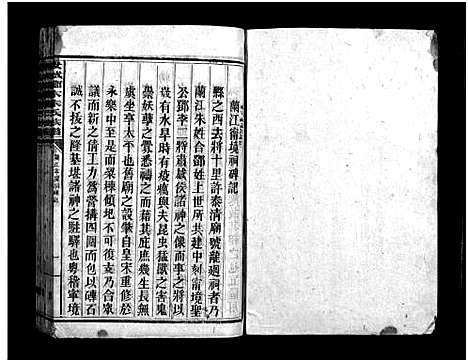 蘭江甯境祠碑記
縣之西去將十里許泰清廟號龍迴祠者乃
蘭江朱姓合鄧姓上世所共建中刻甯境聖
公鄧李二將肅威侯諸神之像而事之將以
曩有水旱疫癘與夫昆虫猛獸之害鬼
祟妖孽之釁悉禱之而藉其庇庶幾生長無
虞坐享太平也舊廟之設肇自皇宋重修於
永樂中至是而衆棟傾圮不可枝支乃合衆
議而新之倩工力爲營搆四圍而包以磚石
誠不拔之隆基堪諸神之駐驛也粤稽甯境